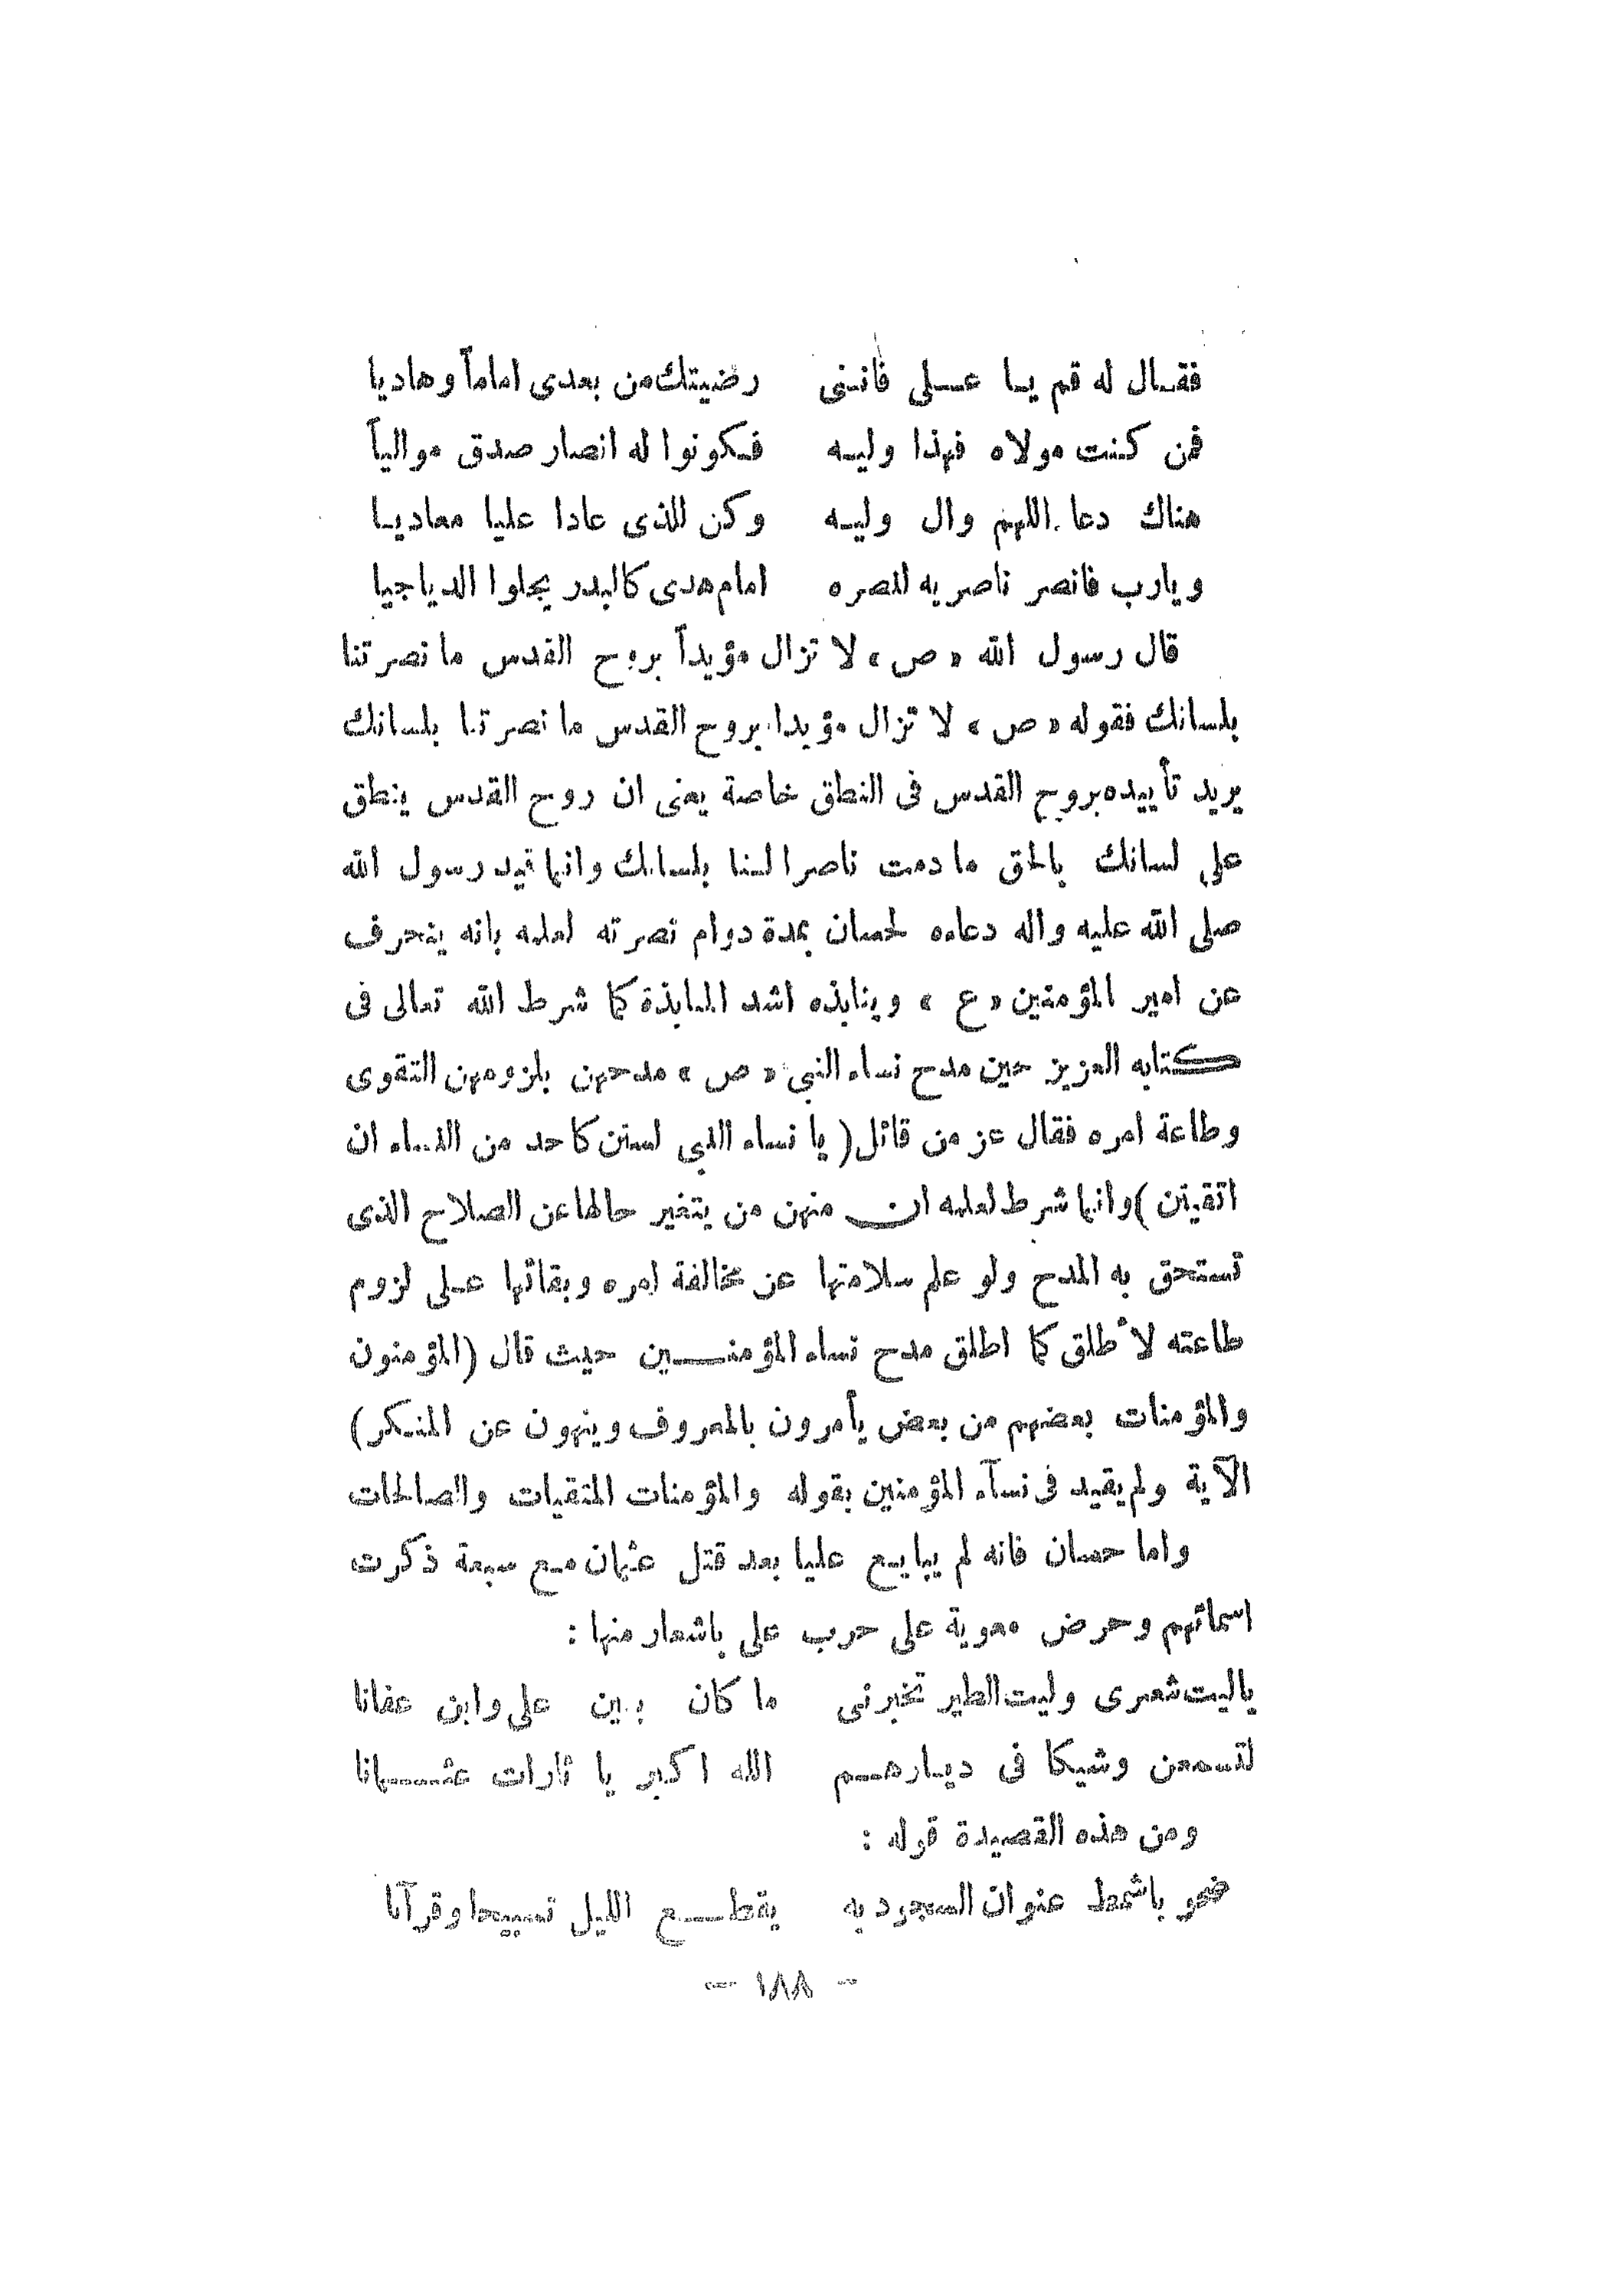 فقال له قم يا علي فانني رضيتك من بعدى اماماً وهاديا
فمن كنت مولاه فهذا وليه فكونوا له انصار صدق موالياً
هناك دعا اللهم وال وليه وكن للذى عادا عليا معاديا
ويارب فانصر ناصريه لنصره امام هدى كالبدر يجلوا الدياجيا
قال رسول الله «ص» لا تزال مؤيداً بروح القدس ما نصرتنا
بلسانك فقوله «ص» لا تزال مؤيدا بروح القدس ما نصرتنا بلسانك
يريد تأييده بروح القدس في النطق خاصة يعنى ان روح القدس ينطق
على لسانك بالحق ما دمت ناصرا لنا بلسانك وانما قيد رسول الله
صلى الله عليه واله دعاءه لحسان بمدة دوام نصرته لعلمه بانه ينحرف
عن امير المؤمنين «ع» وينابذه اشد المنابذة كما شرط الله تعالى فى
كتابه العزيز حين مدح نساء النبي «ص» مدحهن بلزومهن التقوى
وطاعة امره فقال عز من قائل (يا نساء النبي لستن كاحد من النساء ان
اتقيتن) وانما شرط لعلمه ان منهن من يتغير حالها عن الصلاح الذى
تستحق به المدح ولو علم سلامتها عن مخالفة امره وبقائها على لزوم
طاعته لأطلق كما اطلق مدح نساء المؤمنين حيث قال (المؤمنون
والمؤمنات بعضهم من بعض يأمرون بالمعروف وينهون عن المنكر)
الآية ولم يقيد فى نسآء المؤمنين بقوله والمؤمنات المتقيات والصالحات
واما حسان فانه لم يبايع عليا بعد قتل عثمان مع سبعة ذكرت
اسمائهم وحرض معوية على حرب علي باشعار منها :
ياليت شعرى وليت الطير تخبرنى ما كان بين علي وابن عفانا
لتسمعن وشيكا فى ديارهم الله اكبر يا ثارات عثمانا
ومن هذه القصيدة قوله :
ضحو باشمط عنوان السجود به يقطع الليل تسبيحا وقرآنا
- ١٨٨ -